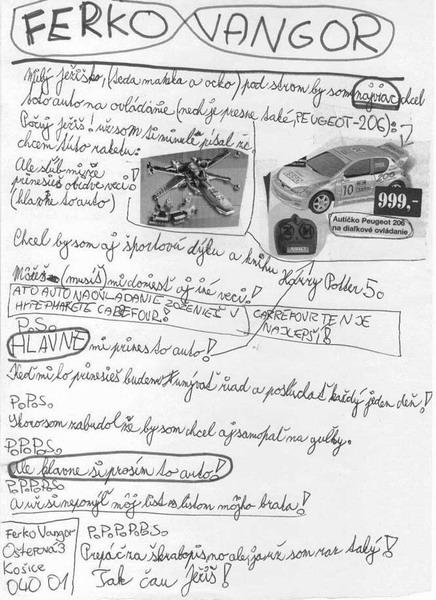 FERKO VANGOR
Milý Ježiško, (teda mamka a ocko) pod strom by som najviac chcel
toto auto na ovládánie (nech je presne také, PEUGEOT-206)!
Počuj Ježiš! už som ti minule písal že
chcem túto raketu.
Ale ľúb
prinesieš obidve veci
(hlavne to auto)
10
999,-
Autíčko Peugeot 206
na diaľkové ovládanie.
Chcel by som aj športovú dýku a knihu Hárry Potter 5.
Môžeš (musíš) mi doniesť aj iné veci!
A TO AUTO NA OVLADANIE ZOŽENIEŠ V
HIPEPMAKETE CAREFOUR!
CARREFOUR TEN JE
NAJLEPŠÍ!
P.S.
HLAVNE mi prines to auto!
Keď mi to prinesieš budem umývať riad a poslúchať každý jeden deň!
P.P.S.
Skoro som zabudol že by som chcel aj samopal na guľky.
P.P.P.S.
Ale hlavne si prosím to auto!
P.P.P.P.S
a už si nepomýľ môj list s listom môjho brata!
Ferko Vangor
Osterova 3
Košice
040 01
P.P.P.P.P.S.
Prepáč za škrabopis no ale ja už som raz taký!
Tak čau Ježiš!